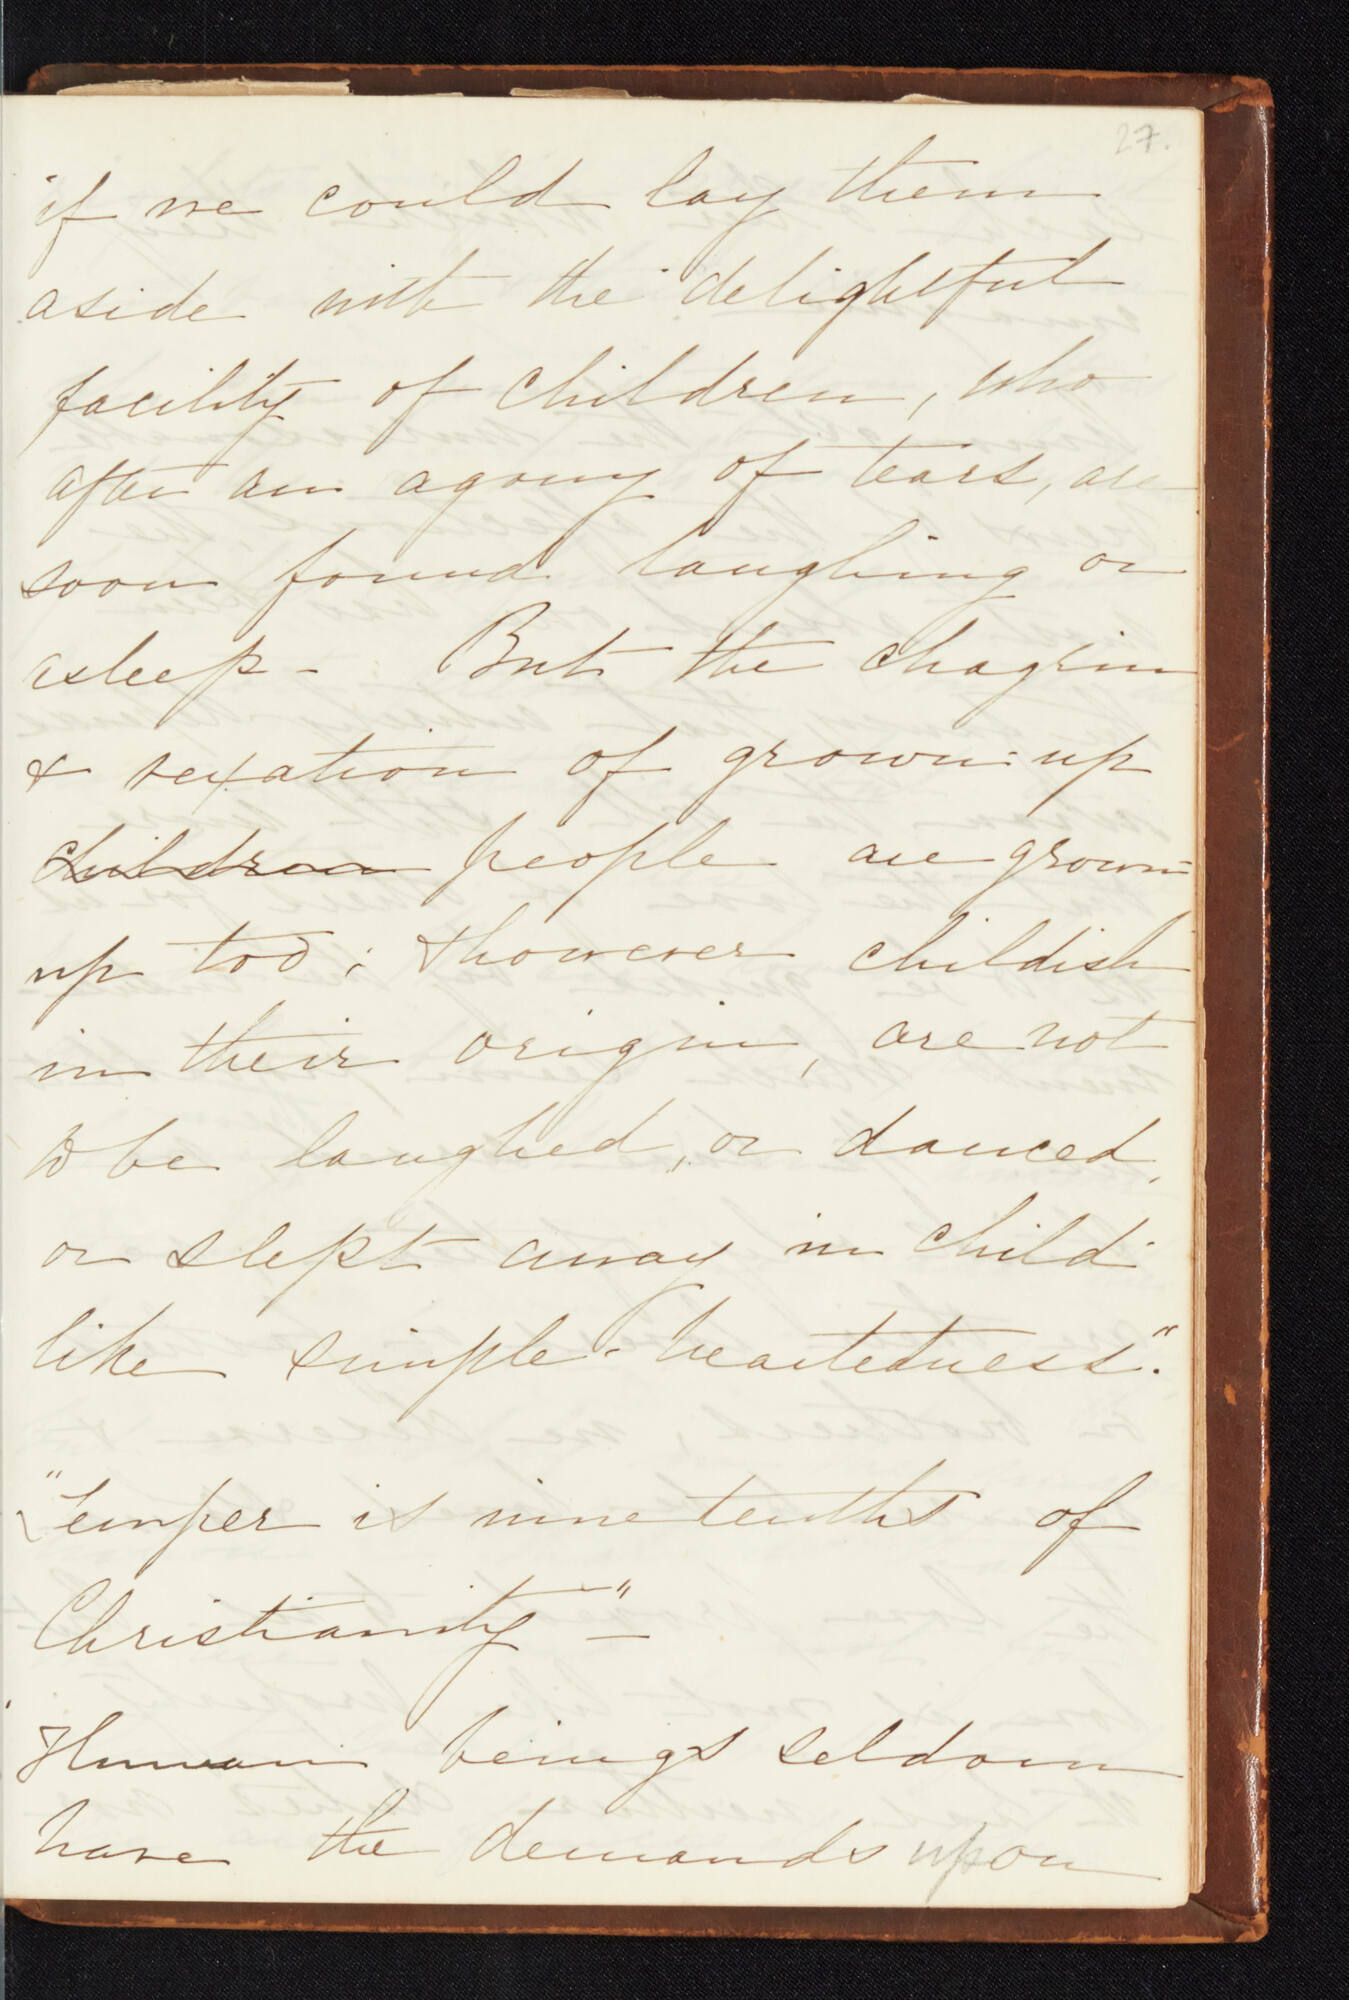 27.
if we could lay them
aside with the delightful
facility of children, who
after an agony of tears, are
soon found laughing or
asleep - But the chagrin
& vexation of grown-up
children people are grown-
up too; & however childish
in their origin, are not
to be laughed, or danced,
or slept away in child-
like simple-heartedness."
"Temper is nine tenths of
Christianity" -
"Human beings seldom
have the demands upon